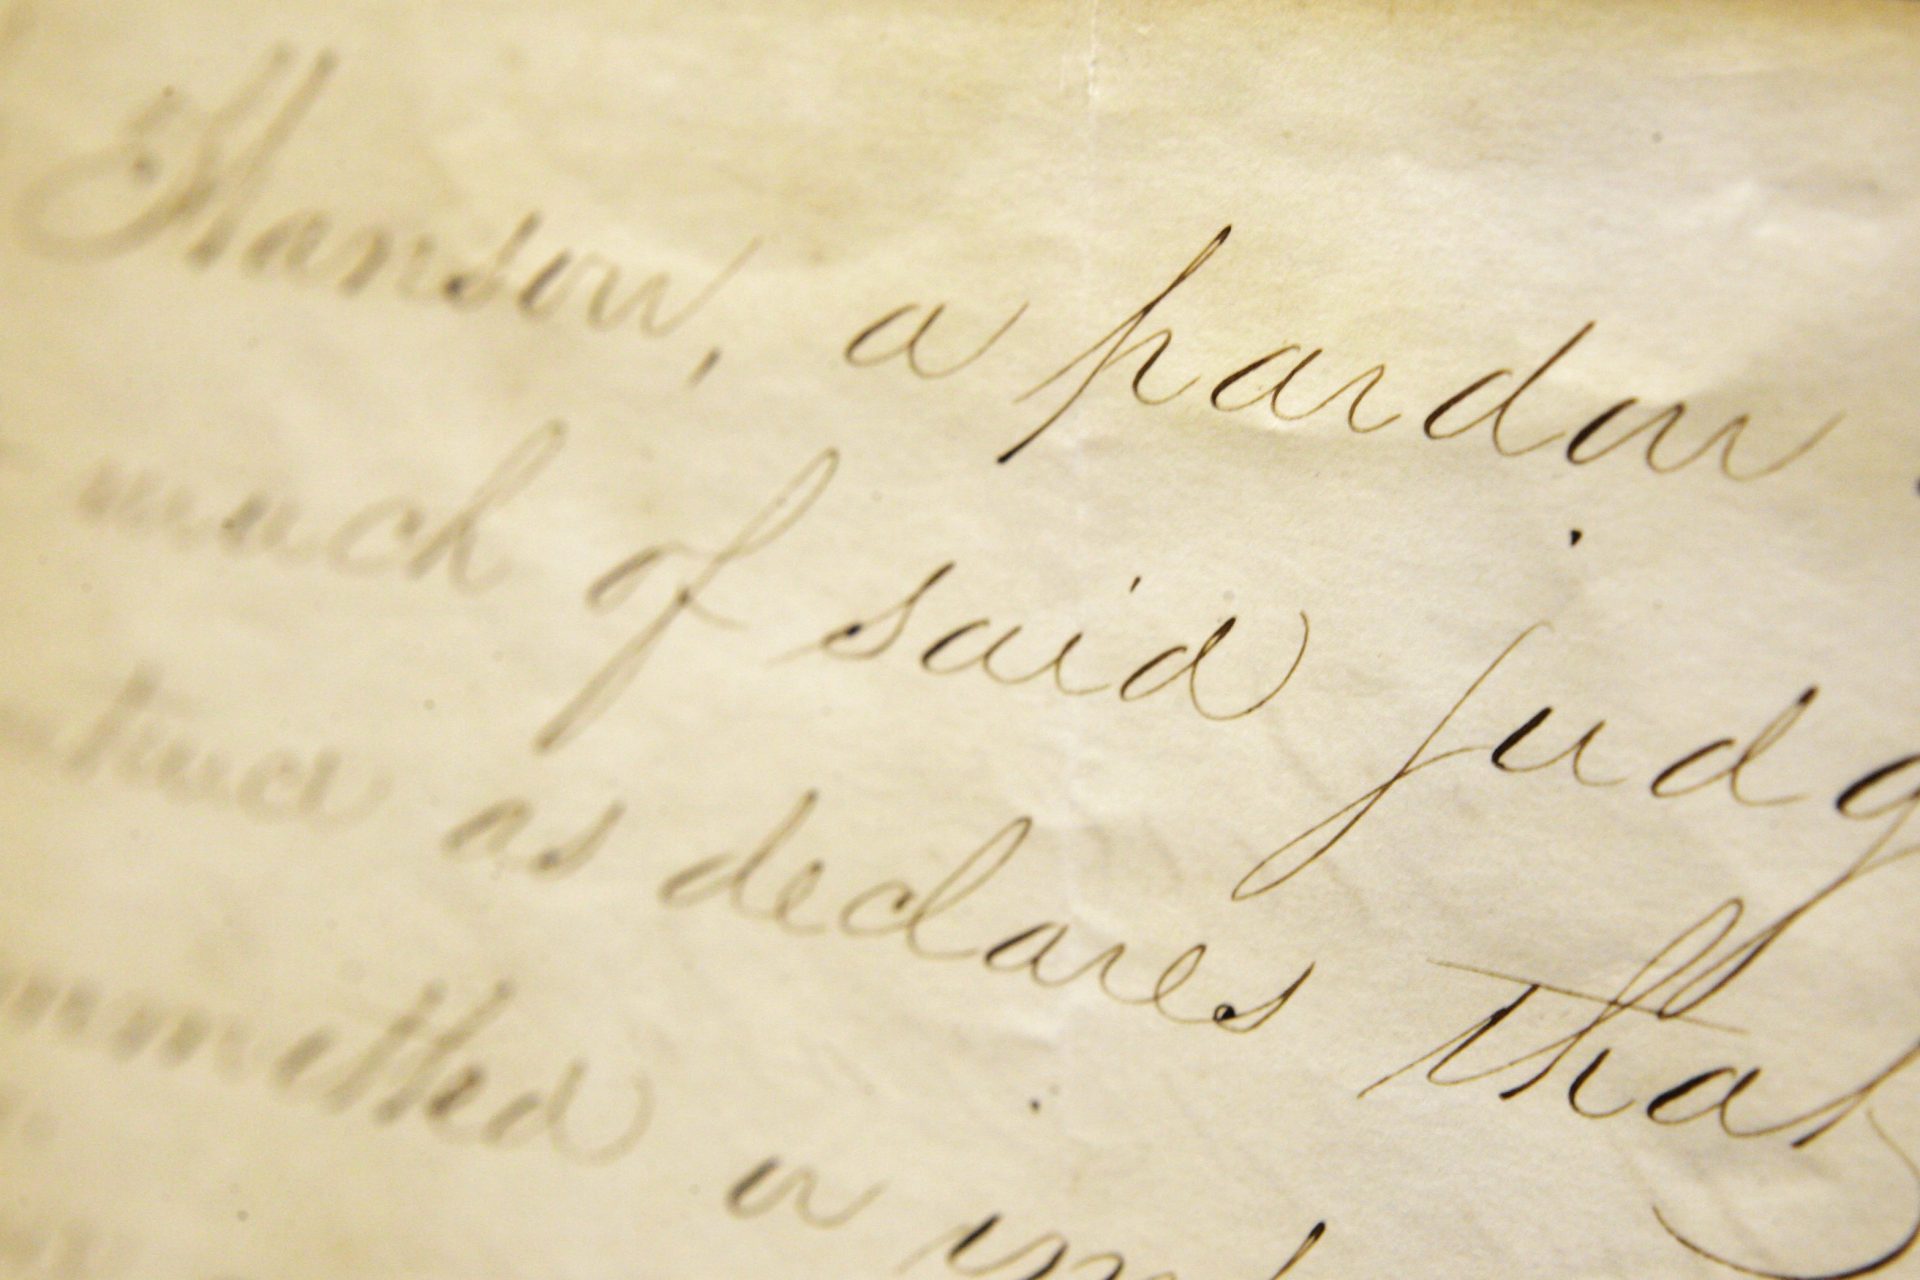 Hanson, a pardon
much of said judg
tence as declares that
mmitted or im